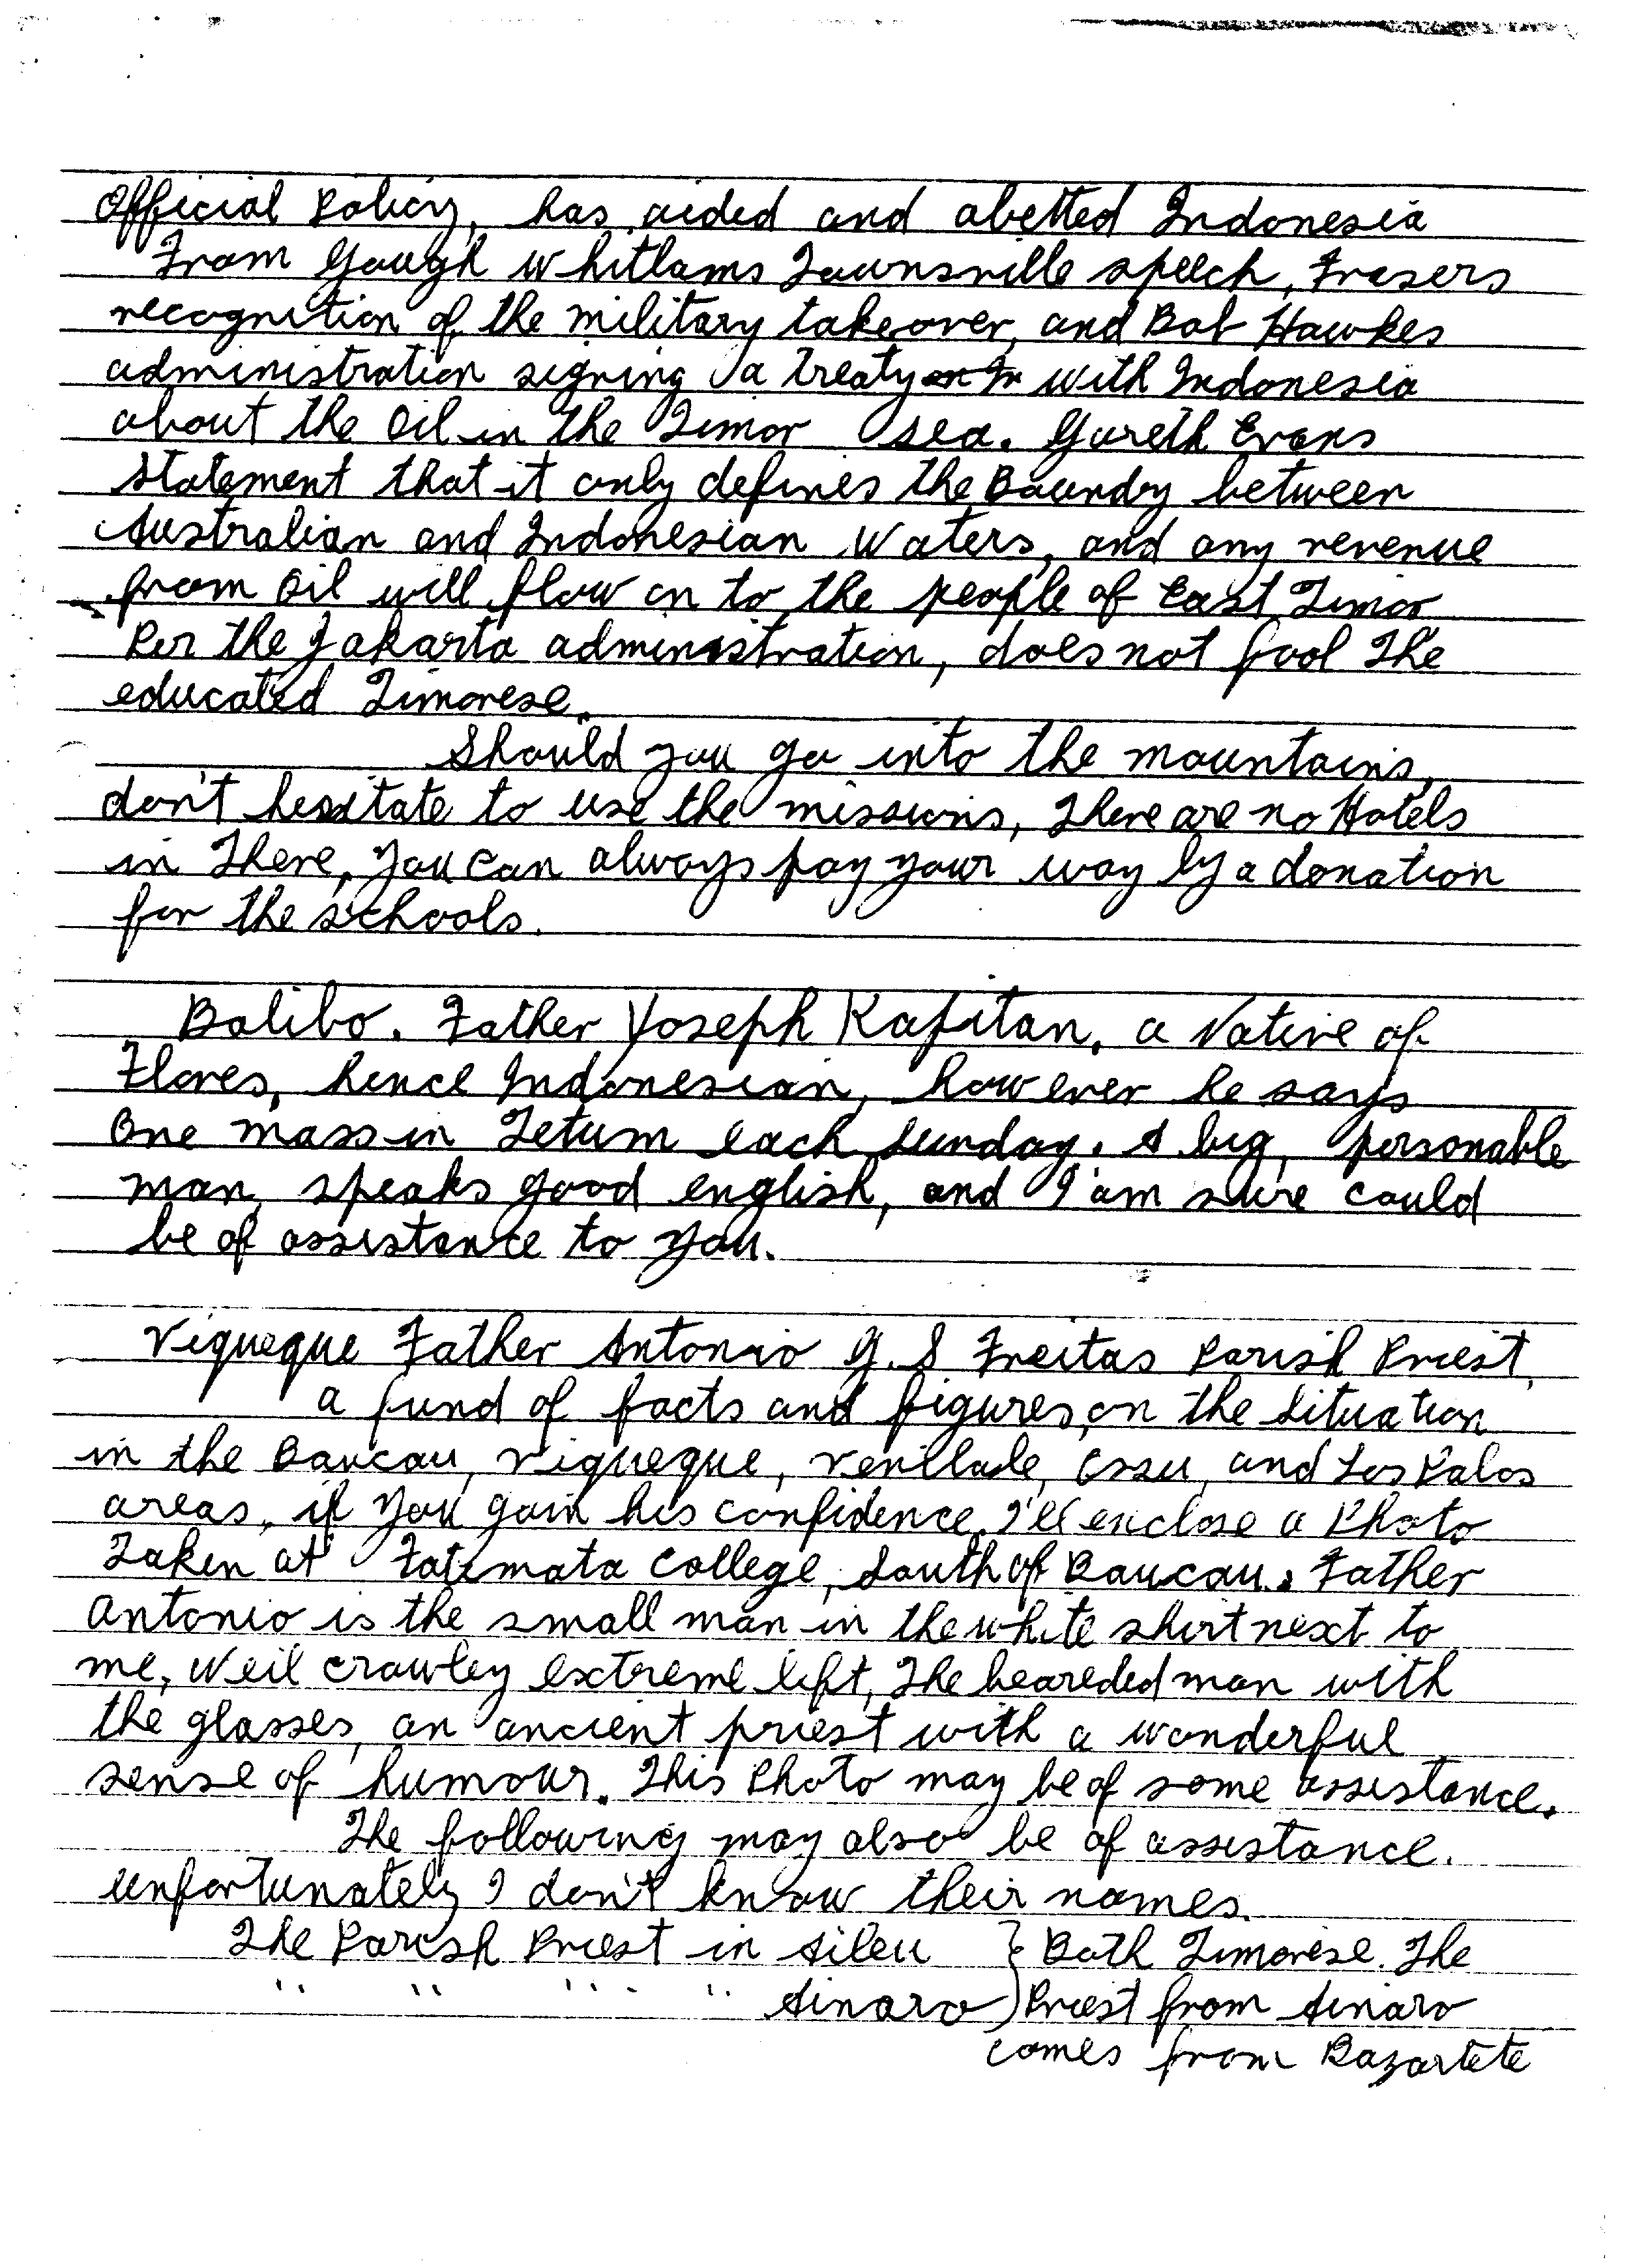 Official Policy, has aided and abetted Indonesia
From Gough Whitlams Townsville speech, Frasers
recognition of the military takeover, and Bob Hawkes
administration signing a treaty with Indonesia
about the Oil in the Timor sea. Gareth Evans
statement that it only defines the Boundry between
Australian and Indonesian Waters, and any revenue
from Oil will flow on to the people of East Timor
Per the Jakarta administration, does not fool The
educated Timorese.
Should you go into the mountains,
don't hesitate to use the missions, There are no Hotels
in There, You can always pay your way by a donation
for the schools.
Balibo. Father Yoseph Kapitan, a Native of
Flores, hence Indonesian, however he says
One mass in Tetum each Sunday. A big, personable
man, speaks good english, and I'am sure could
be of assistance to you.
Viqueque Father Antonio G. S Freitas Parish Priest,
a fund of facts and figures, on the situation
in the Baucau, Viqueque, Venillade, Ossu, and Los Palos
areas, if you gain his confidence. I'll enclose a Photo
Taken at Fatumata College, South of Baucau. Father
Antonio is the small man in the white shirt next to
me, Neil Crawley extreme left, The beareded man with
the glasses, an ancient priest with a wonderful
sense of humour. This Photo may be of some assistance.
The following may also be of assistance.
unfortunately I don't know their names.
The Parish Priest in Aileu } Both Timorese. The
" " " " Ainaro ) Priest from Ainaro
comes from Bazartete